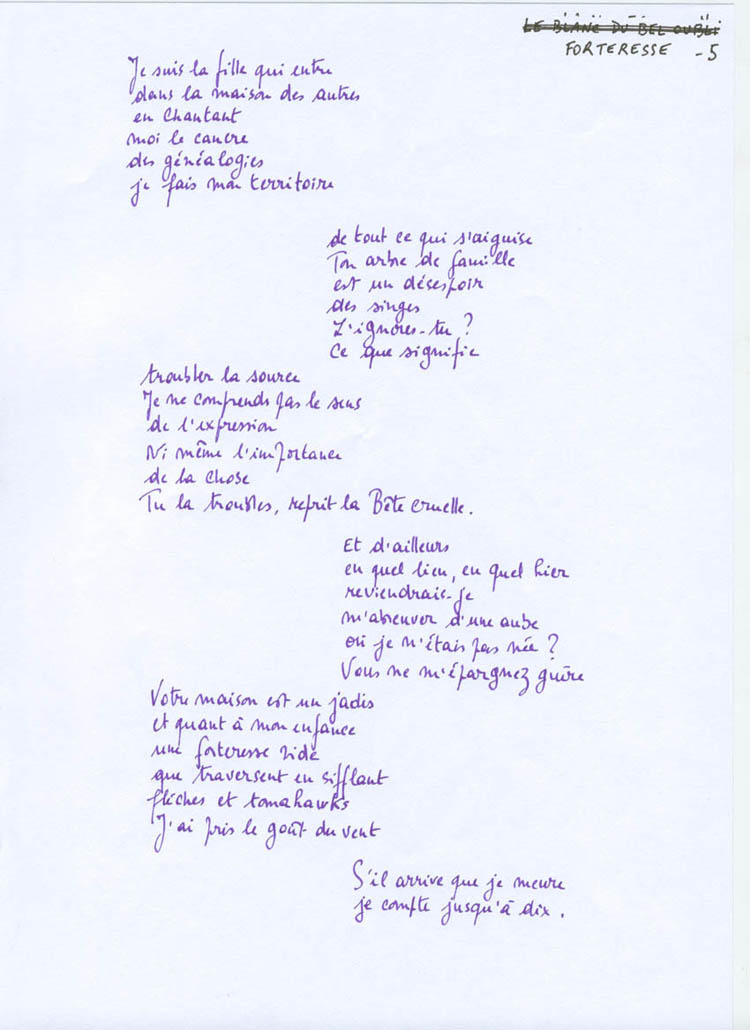 LE BLANC DU BEL OUBLI
FORTERESSE - 5
Je suis la fille qui entre
dans la maison des autres
en chantant
moi le cancre
des généalogies
je fais mon territoire
de tout ce qui s'aiguise
Ton arbre de famille
est un désespoir
des singes
L'ignores-tu ?
Ce que signifie
troubler la source
Je ne comprends pas le sens
de l'expression
Ni même l'importance
de la chose
Tu la troubles, reprit la Bête cruelle.
Et d'ailleurs
en quel lieu, en quel hier
reviendrais-je
m'abreuver d'une aube
où je n'étais pas née ?
Vous ne m'épargnez guère
Votre maison est un jadis
et quant à mon enfance
une forteresse vide
que traversent en sifflant
flèches et tomahawks
J'ai pris le goût du vent
S'il arrive que je meure
je compte jusqu'à dix.